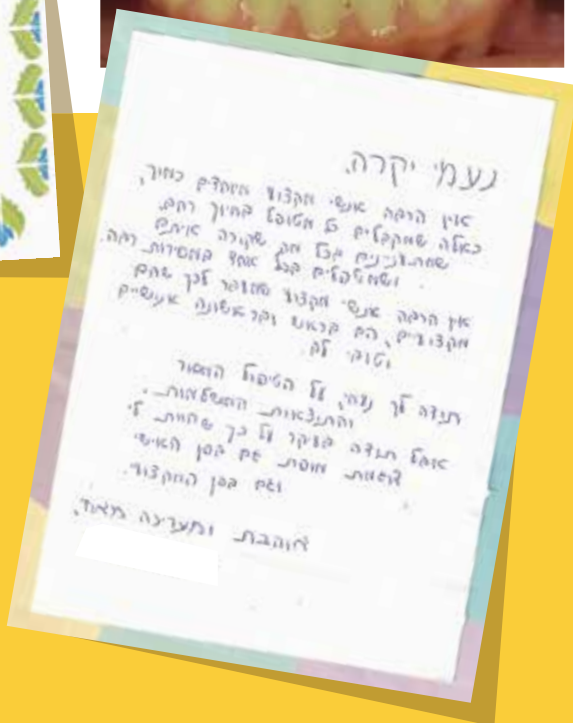 נעמי יקרה,
אין הרבה אנשי מקצוע מיוחדים כמוך,
כאלה שמקבלים כל מטופל בחיוך רחב,
שמתעניינים בכל מה שקורה איתם
ושמטפלים בכל אחד במסירות רבה.
אין הרבה אנשי מקצוע שמעבר לכך שהם
מקצועיים, הם בראש ובראשונה אנושיים
וטובי לב.
תודה לך נעמי, על הטיפול המסור
והתוצאות המושלמות.
אבל תודה בעיקר על כך שהיית לי
דוגמת מופת גם בפן האישי
וגם בפן המקצועי.
אוהבת ומעריכה מאוד,